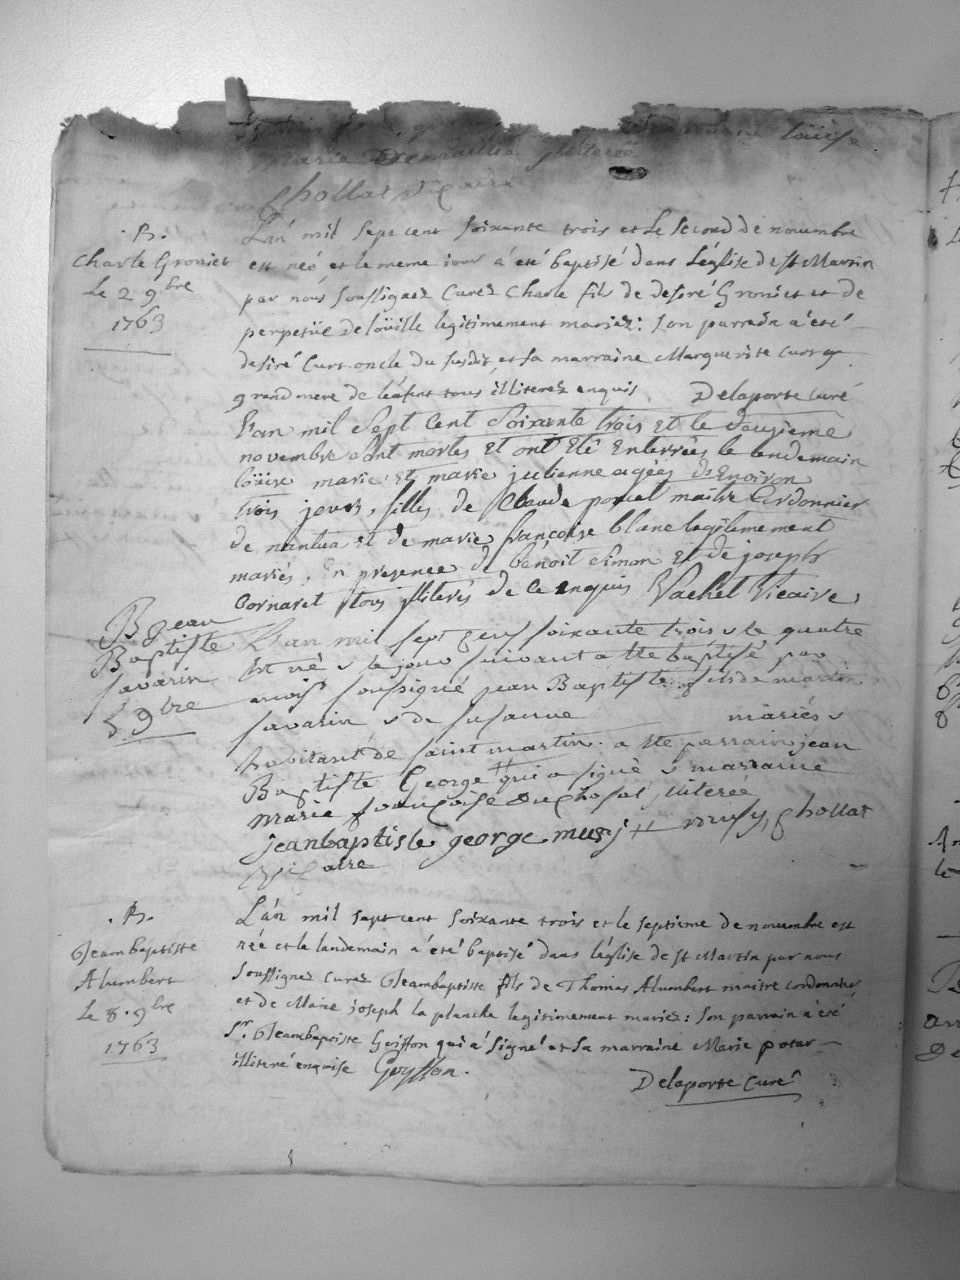 Louise
Marie
Chollat Vicaire
B.
Charle Groniet
Le 2 9bre
1763
L'an mil sept cent soixante trois et le second de nouembre
est neé et le meme iour á eté baptisé dans L'église de st Martin
par nous soussignez Curez Charle fils de desiré Groniet et de
perpetüe deloüille legitimement mariez: son parrain a eté
desiré Curt oncle du susdit et sa marraine Marguerite curt
grand mere de l'enfent tous illiterez enquis Delaporte curé
L'an mil sept cent soixante trois et le deuxieme
novembre sont mortes et ont eté enterrées le lendemain
loüise marie et marie julienne agées d'environ
trois jours, filles de Claude poncet maitre cordonnier
de nantua et de marie françoise blanc legitimement
mariés, en presence de benoit simon et de joseph
Cornaret tous illiterés de ce enquis Vachet Vicaire
B jean
Baptiste
savarin
5 9bre
L'an mil sept cent soixante trois & le quatre
est né & le jour suivant a ete baptisé par
nous soussigné jean Baptiste fils de martin
savarin & de susanne mariés &
habitant de saint martin. a ete parrain jean
Baptiste George # qui a signé & marraine
marie françoise duchosal illiterée
jeanbaptiste george musy # musy, Chollat
Vicaire
B.
Jeambaptiste
Alumbert
Le 8. 9bre
1763
L'án mil sept cent soixante trois et le septieme de nouembre est
née et le landemain á eté baptisé dans l'église de st Martin par nous
soussignez curez Jeambaptiste fils de Thomas Alumbert maitre cordonnier
et de Marie joseph la planche legitimement mariez: son parrain á eté
Sr. Jeambaptiste Goiffon qui á signé et sa marraine Marie potar
illiteré enquise Goyffon.
Delaporte Curé